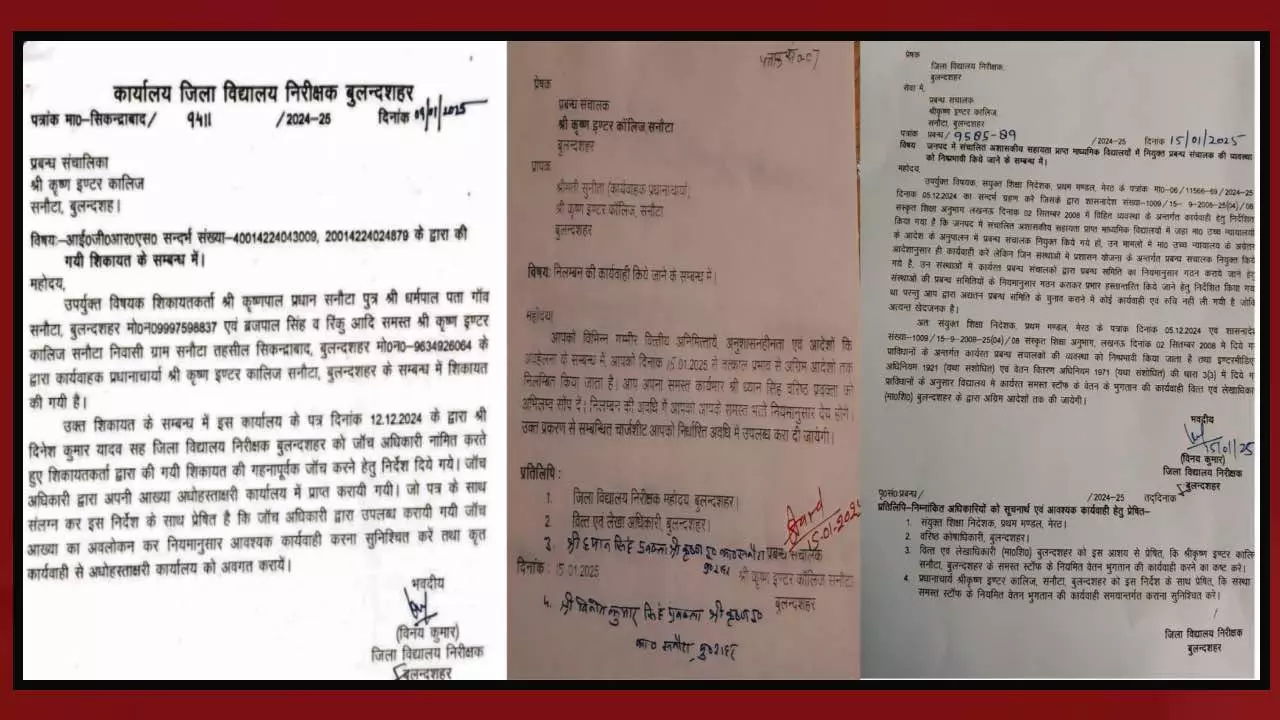 कार्यालय जिला विद्यालय निरीक्षक बुलन्दशहर
पत्रांक मा0-सिकन्द्राबाद/ 9411 /2024-25 दिनांक 09/01/2025
प्रबन्ध संचालिका
श्री कृष्ण इण्टर कालिज
सनौटा, बुलन्दशह।
विषयः-आई0जी0आर0एस0 सन्दर्भ संख्या-40014224043009, 20014224024879 के द्वारा की
गयी शिकायत के सम्बन्ध में।
महोदय,
उपर्युक्त विषयक शिकायतकर्ता श्री कृष्णपाल प्रधान सनौटा पुत्र श्री धर्मपाल पता गाँव
सनौटा, बुलन्दशहर मो0न09997598837 एवं ब्रजपाल सिंह व रिंकु आदि समस्त श्री कृष्ण इण्टर
कालिज सनौटा निवासी ग्राम सनौटा तहसील सिकन्द्राबाद, बुलन्दशहर मो0न0-9634926064 के
द्वारा कार्यवाहक प्रधानाचार्या श्री कृष्ण इण्टर कालिज सनौटा, बुलन्दशहर के सम्बन्ध में शिकायत
की गयी है।
उक्त शिकायत के सम्बन्ध में इस कार्यालय के पत्र दिनांक 12.12.2024 के द्वारा श्री
दिनेश कुमार यादव सह जिला विद्यालय निरीक्षक बुलन्दशहर को जॉच अधिकारी नामित करते
हुए शिकायतकर्ता द्वारा की गयी शिकायत की गहनापूर्वक जॉच करने हेतु निर्देश दिये गये। जॉच
अधिकारी द्वारा अपनी आख्या अधोहस्ताक्षरी कार्यालय में प्राप्त करायी गयी। जो पत्र के साथ
संलग्न कर इस निर्देश के साथ प्रेषित है कि जॉच अधिकारी द्वारा उपलब्ध करायी गयी जॉच
आख्या का अवलोकन कर नियमानुसार आवश्यक कार्यवाही करना सुनिश्चित करें तथा कृत
कार्यवाही से अधोहस्ताक्षरी कार्यालय को अवगत करायें।
भवदीय
(विनय कुमार)
जिला विद्यालय निरीक्षक
बुलन्दशहर
प्रेषक
प्रबन्ध संचालक
श्री कृष्ण इण्टर कॉलिज सनौटा
बुलन्दशहर
प्रापक
श्रीमती सुनीता (कार्यवाहक प्रधानाचार्या)
श्री कृष्ण इण्टर कॉलिज, सनौटा
बुलन्दशहर
विषय: निलम्बन की कार्यवाही किये जाने के सम्बन्ध में।
महोदया
आपको विभिन्न गम्भीर वित्तीय अनिमित्ताये, अनुशासनहीनता एवं आदेशों कि
अवहेलना के सम्बन्ध में, आपको दिनांक 15.01.2025 से तत्काल प्रभाव से अग्रिम आदेशों तक
निलम्बित किया जाता है। आप अपना समस्त कार्यभार श्री ध्यान सिंह वरिष्ठ प्रवक्ता को
अभिलम्ब सौंप दें। निलम्बन की अवधि में आपको आपके समस्त भत्ते नियमानुसार देय होंगे।
उक्त प्रकरण से सम्बन्धित चार्जशीट आपको निर्धारित अवधि में उपलब्ध करा दी जायेगी।
प्रतिलिपि :
1. जिला विद्यालय निरीक्षक महोदय, बुलन्दशहर।
2. वित्त एवं लेखा अधिकारी, बुलन्दशहर।
15.01.2025
3. श्री ध्यान सिंह प्रवक्ता श्री कृष्ण इ0 का0 सनौटा
बु0शहर
प्रबन्ध संचालक
दिनांक : 15.01.2025 श्री कृष्ण इण्टर कॉलिज सनौटा
बुलन्दशहर
4. श्री विनोद कुमार सिंह प्रवक्ता श्री कृष्ण इ0
का0 सनौटा, बु0शहर
प्रेषक
जिला विद्यालय निरीक्षक,
बुलन्दशहर
सेवा में,
प्रबन्ध संचालक
श्रीकृष्ण इण्टर कॉलिज,
सनौटा, बुलन्दशहर
पत्रांक प्रबन्ध/ 9585-89 /2024-25 दिनांक 15/01/2025
विषय जनपद में संचालित अशासकीय सहायता प्राप्त माध्यमिक विद्यालयों में नियुक्त प्रबन्ध संचालक की व्यवस्था
को निष्प्रभावी किये जाने के सम्बन्ध में।
महोदय,
उपर्युक्त विषयक, संयुक्त शिक्षा निदेशक, प्रथम मण्डल, मेरठ के पत्रांक मा0-06/11566-69/2024-25
दिनांक 05.12.2024 का सन्दर्भ ग्रहण करें जिसके द्वारा शासनादेश संख्या-1009/15- 9-2008-25(04)/08
संस्कृत शिक्षा अनुभाग लखनऊ दिनांक 02 सितम्बर 2008 में विहित व्यवस्था के अन्तर्गत कार्यवाही हेतु निर्देशित
किया गया है कि जनपद में संचालित अशासकीय सहायता प्राप्त माध्यमिक विद्यालयों में जहां मा0 उच्च न्यायालयों
के आदेश के अनुपालन में प्रबन्ध संचालक नियुक्त किये गये हों, उन मामलों में मा0 उच्च न्यायालय के अग्रेतर
आदेशानुसार ही कार्यवाही करें लेकिन जिन संस्थाओं में प्रशासन योजना के अन्तर्गत प्रबन्ध संचालक नियुक्त किये
गये है, उन संस्थाओं में कार्यरत प्रबन्ध संचालकों द्वारा प्रबन्ध समिति का नियमानुसार गठन कराये जाने हेतु
संस्थाओं की प्रबन्ध समितियों के नियमानुसार गठन कराकर प्रभार हस्तान्तरित किये जाने हेतु निर्देशित किया गया
था परन्तु आप द्वारा अद्यतन प्रबन्ध समिति के चुनाव कराने में कोई कार्यवाही एवं रुचि नही ली गयी है जोकि
अत्यन्त खेदजनक है।
अतः संयुक्त शिक्षा निदेशक, प्रथम मण्डल, मेरठ के पत्रांक दिनांक 05.12.2024 एवं शासनादेश
संख्या-1009/15-9-2008-25(04)/08 संस्कृत शिक्षा अनुभाग, लखनऊ दिनांक 02 सितम्बर 2008 में दिये ग
प्राविधानों के अन्तर्गत कार्यरत प्रबन्ध संचालकों की व्यवस्था को निष्प्रभावी किया जाता है तथा इण्टरमीडिए
अधिनियम 1921 (यथा संशोधित) एवं वेतन वितरण अधिनियम 1971 (यथा संशोधित) की धारा 3(3) में दिये ग
प्राविधानों के अनुसार विद्यालय में कार्यरत समस्त स्टॉफ के वेतन के भुगतान की कार्यवाही वित्त एवं लेखाधिका
(मा0शि0) बुलन्दशहर के द्वारा अग्रिम आदेशों तक की जायेगी।
भवदीय
15/01/25
(विनय कुमार)
जिला विद्यालय निरीक्षक
बुलन्दशहर
पृ0सं0 प्रबन्ध/ /2024-25 तद्दिनांक
प्रतिलिपि-निम्नांकित अधिकारियों को सूचनार्थ एवं आवश्यक कार्यवाही हेतु प्रेषित-
1. संयुक्त शिक्षा निदेशक, प्रथम मण्डल, मेरठ।
2. वरिष्ठ कोषाधिकारी, बुलन्दशहर।
3. वित्त एवं लेखाधिकारी (मा0शि0) बुलन्दशहर को इस आशय से प्रेषित, कि श्रीकृष्ण इण्टर कालि
सनौटा, बुलन्दशहर के समस्त स्टॉफ के नियमित वेतन भुगतान की कार्यवाही करने का कष्ट करें।
4. प्रधानाचार्य श्रीकृष्ण इण्टर कालिज, सनौटा, बुलन्दशहर को इस निर्देश के साथ प्रेषित, कि संस्था
समस्त स्टॉफ के नियमित वेतन भुगतान की कार्यवाही समयान्तर्गत कराना सुनिश्चित करे।
जिला विद्यालय निरीक्षक
बुलन्दशहर